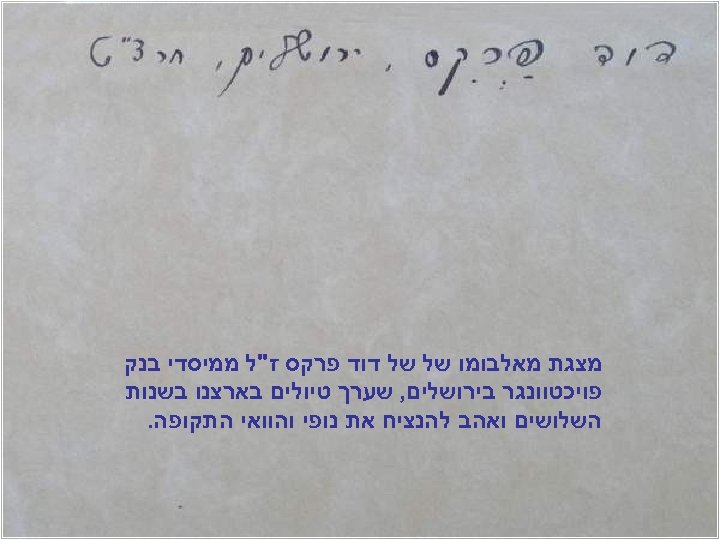 דוד פַּרְקָס, ירושלים, תרצ"ט
מצגת מאלבומו של של דוד פרקס ז"ל ממיסדי בנק
פויכטוונגר בירושלים, שערך טיולים בארצנו בשנות
השלושים ואהב להנציח את נופי והוואי התקופה.